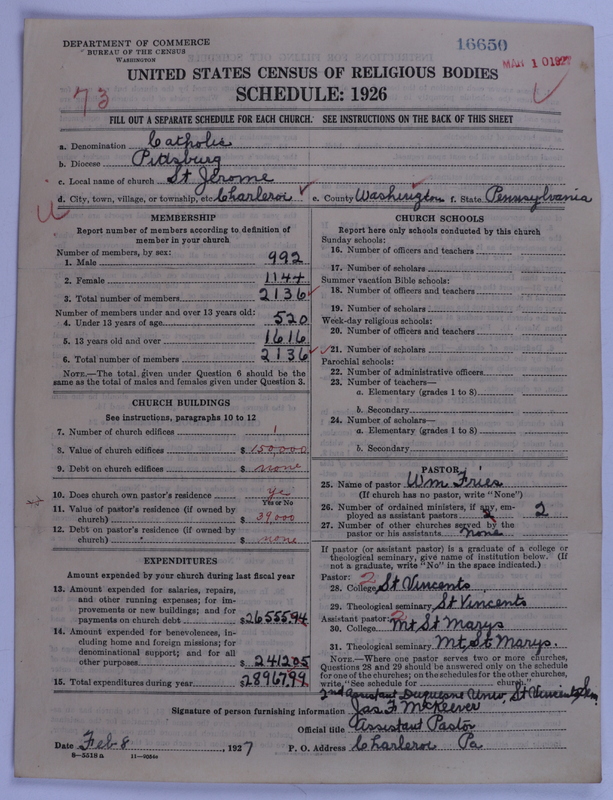 DEPARTMENT OF COMMERCE
BUREAU OF THE CENSUS
WASHINGTON
16650
MAR 10 1927
UNITED STATES CENSUS OF RELIGIOUS BODIES
SCHEDULE: 1926
73
FILL OUT A SEPARATE SCHEDULE FOR EACH CHURCH. SEE INSTRUCTIONS ON THE BACK OF THIS SHEET
a. Denomination Catholic
b. Diocese Pittsburg
c. Local name of church St Jerome
d. City, town, village, or township, etc. Charleroi e. County Washington f. State Pennsylvania
MEMBERSHIP
Report number of members according to definition of member in your church
Number of members, by sex:
1. Male 992
2. Female 1144
3. Total number of members 2136
Number of members under and over 13 years old:
4. Under 13 years of age 520
5. 13 years old and over 1616
6. Total number of members 2136
NOTE.—The total given under Question 6 should be the same as the total of males and females given under Question 3.
CHURCH BUILDINGS
See instructions, paragraphs 10 to 12
7. Number of church edifices 1
8. Value of church edifices $150,000
9. Debt on church edifices $ none
10. Does church own pastor's residence ye
Yes or No
11. Value of pastor's residence (if owned by church) $ 39000
12. Debt on pastor's residence (if owned by church) $ none
EXPENDITURES
Amount expended by your church during last fiscal year
13. Amount expended for salaries, repairs, and other running expenses; for improvements or new buildings; and for payments on church debt $26555.94
14. Amount expended for benevolences, including home and foreign missions; for denominational support; and for all other purposes $2412.05
15. Total expenditures during year $28967.99
CHURCH SCHOOLS
Report here only schools conducted by this church
Sunday schools:
16. Number of officers and teachers
17. Number of scholars
Summer vacation Bible schools:
18. Number of officers and teachers
19. Number of scholars
Week-day religious schools:
20. Number of officers and teachers
21. Number of scholars
Parochial schools:
22. Number of administrative officers
23. Number of teachers—
a. Elementary (grades 1 to 8)
b. Secondary
24. Number of scholars—
a. Elementary (grades 1 to 8)
b. Secondary
PASTOR
25. Name of pastor Wm Fries
(If church has no pastor, write "None")
26. Number of ordained ministers, if any, employed as assistant pastors 2
27. Number of other churches served by the pastor or his assistants none
If pastor (or assistant pastor) is a graduate of a college or theological seminary, give name of institution below. (If not a graduate, write "No" in the space indicated.)
Pastor: 2
28. College St Vincents
29. Theological seminary St Vincents
Assistant pastor: 2
30. College Mt St Marys
31. Theological seminary Mt St Marys.
NOTE.—Where one pastor serves two or more churches, Questions 28 and 29 should be answered only on the schedule for one of the churches; on the schedules for the other churches, write, "See schedule for church."
2nd assistant Duquesne Univ, St Vincents Sem
Signature of person furnishing information Jas F McKeever
Official title Assistant Pastor
Date Feb 8, 1927 P. O. Address Charleroi Pa
8—5518a